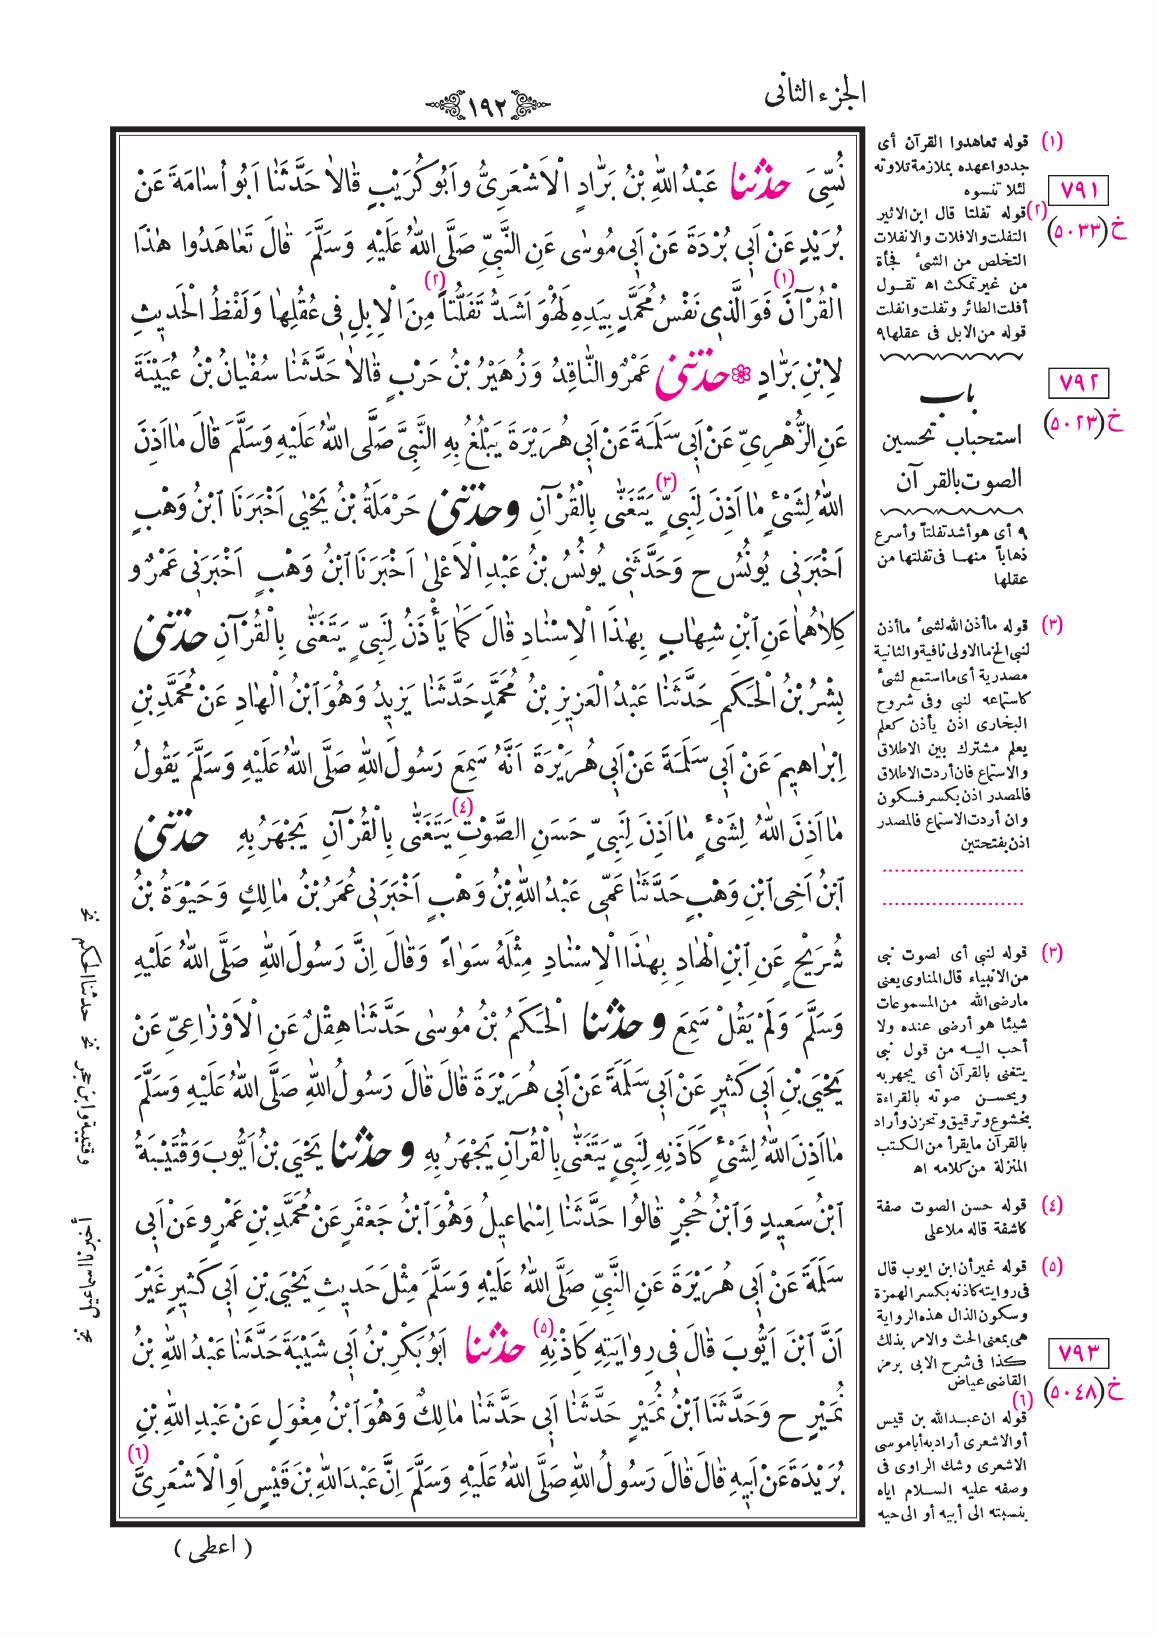 الجزء الثانى
١٩٢
نُسِّىَ حَدَّثَنَا عَبْدُ اللهِ بْنُ بَرَّادٍ الْاَشْعَرِىُّ وَاَبُو كُرَيْبٍ قَالَا حَدَّثَنَا اَبُو اُسَامَةَ عَنْ
بُرَيْدٍ عَنْ اَبِى بُرْدَةَ عَنْ اَبِى مُوسٰى عَنِ النَّبِىِّ صَلَّى اللهُ عَلَيْهِ وَسَلَّمَ قَالَ تَعَاهَدُوا هٰذَا
الْقُرْآنَ (١) فَوَالَّذِى نَفْسُ مُحَمَّدٍ بِيَدِهِ لَهُوَ اَشَدُّ تَفَلُّتاً (٢) مِنَ الْاِبِلِ فِى عُقُلِهَا وَلَفْظُ الْحَدِيثِ
لِابْنِ بَرَّادٍ ❁ حَدَّثَنِى عَمْرٌو النَّاقِدُ وَزُهَيْرُ بْنُ حَرْبٍ قَالَا حَدَّثَنَا سُفْيَانُ بْنُ عُيَيْنَةَ
عَنِ الزُّهْرِىِّ عَنْ اَبِى سَلَمَةَ عَنْ اَبِى هُرَيْرَةَ يَبْلُغُ بِهِ النَّبِىَّ صَلَّى اللهُ عَلَيْهِ وَسَلَّمَ قَالَ مَا اَذِنَ
اللهُ لِشَىْءٍ مَا اَذِنَ لِنَبِىٍّ (٣) يَتَغَنَّى بِالْقُرْآنِ وحَدَّثَنِى حَرْمَلَةُ بْنُ يَحْيٰى اَخْبَرَنَا ابْنُ وَهْبٍ
اَخْبَرَنِى يُونُسُ ح وَحَدَّثَنِى يُونُسُ بْنُ عَبْدِ الْاَعْلٰى اَخْبَرَنَا ابْنُ وَهْبٍ اَخْبَرَنِى عَمْرٌو
كِلَاهُمَا عَنِ ابْنِ شِهَابٍ بِهٰذَا الْاِسْنَادِ قَالَ كَمَا يَأْذَنُ لِنَبِىٍّ يَتَغَنَّى بِالْقُرْآنِ حَدَّثَنِى
بِشْرُ بْنُ الْحَكَمِ حَدَّثَنَا عَبْدُ الْعَزِيزِ بْنُ مُحَمَّدٍ حَدَّثَنَا يَزِيدُ وَهُوَ ابْنُ الْهَادِ عَنْ مُحَمَّدِ بْنِ
اِبْرَاهِيمَ عَنْ اَبِى سَلَمَةَ عَنْ اَبِى هُرَيْرَةَ اَنَّهُ سَمِعَ رَسُولَ اللهِ صَلَّى اللهُ عَلَيْهِ وَسَلَّمَ يَقُولُ
مَا اَذِنَ اللهُ لِشَىْءٍ مَا اَذِنَ لِنَبِىٍّ حَسَنِ الصَّوْتِ (٤) يَتَغَنَّى بِالْقُرْآنِ يَجْهَرُ بِهِ حَدَّثَنِى
ابْنُ اَخِى ابْنِ وَهْبٍ حَدَّثَنَا عَمِّى عَبْدُ اللهِ بْنُ وَهْبٍ اَخْبَرَنِى عُمَرُ بْنُ مَالِكٍ وَحَيْوَةُ بْنُ
شُرَيْحٍ عَنِ ابْنِ الْهَادِ بِهٰذَا الْاِسْنَادِ مِثْلَهُ سَوَاءً وَقَالَ اِنَّ رَسُولَ اللهِ صَلَّى اللهُ عَلَيْهِ
وَسَلَّمَ وَلَمْ يَقُلْ سَمِعَ وحَدَّثَنَا الْحَكَمُ بْنُ مُوسٰى حَدَّثَنَا هِقْلٌ عَنِ الْاَوْزَاعِىِّ عَنْ
يَحْيَى بْنِ اَبِى كَثِيرٍ عَنْ اَبِى سَلَمَةَ عَنْ اَبِى هُرَيْرَةَ قَالَ قَالَ رَسُولُ اللهِ صَلَّى اللهُ عَلَيْهِ وَسَلَّمَ
مَا اَذِنَ اللهُ لِشَىْءٍ كَاَذَنِهِ لِنَبِىٍّ يَتَغَنَّى بِالْقُرْآنِ يَجْهَرُ بِهِ وحَدَّثَنَا يَحْيَى بْنُ اَيُّوبَ وَقُتَيْبَةُ
ابْنُ سَعِيدٍ وَابْنُ حُجْرٍ قَالُوا حَدَّثَنَا اِسْمَاعِيلُ وَهُوَ ابْنُ جَعْفَرٍ عَنْ مُحَمَّدِ بْنِ عَمْرٍو عَنْ اَبِى
سَلَمَةَ عَنْ اَبِى هُرَيْرَةَ عَنِ النَّبِىِّ صَلَّى اللهُ عَلَيْهِ وَسَلَّمَ مِثْلَ حَدِيثِ يَحْيَى بْنِ اَبِى كَثِيرٍ غَيْرَ
اَنَّ ابْنَ اَيُّوبَ قَالَ فِى رِوَايَتِهِ كَاِذْنِهِ (٥) حَدَّثَنَا اَبُو بَكْرِ بْنُ اَبِى شَيْبَةَ حَدَّثَنَا عَبْدُ اللهِ بْنُ
نُمَيْرٍ ح وَحَدَّثَنَا ابْنُ نُمَيْرٍ حَدَّثَنَا اَبِى حَدَّثَنَا مَالِكٌ وَهُوَ ابْنُ مِغْوَلٍ عَنْ عَبْدِ اللهِ بْنِ
بُرَيْدَةَ عَنْ اَبِيهِ قَالَ قَالَ رَسُولُ اللهِ صَلَّى اللهُ عَلَيْهِ وَسَلَّمَ اِنَّ عَبْدَ اللهِ بْنَ قَيْسٍ اَوِ الْاَشْعَرِىَّ (٦)
( اعطى )
(١) قوله تعاهدوا القرآن أى
جددوا عهده بملازمة تلاوته
لئلا تنسوه
(٢) قوله تفلتا قال ابن الاثير
التفلت والافلات والانفلات
التخلص من الشئ فجأة
من غير تمكث اه تقول
أفلت الطائر وتفلت وانفلت
قوله من الابل فى عقلها ٩
باب
استحباب تحسين
الصوت بالقرآن
٩ أى هو أشد تفلتاً وأسرع
ذهاباً منها فى تفلتها من
عقلها
(٣) قوله ما أذن الله لشئ ما أذن
لنبى الخ ما الاولى نافية والثانية
مصدرية أى ما استمع لشئ
كاستماعه لنبى وفى شروح
البخارى اذن يأذن كعلم
يعلم مشترك بين الاطلاق
والاستماع فان أردت الاطلاق
فالمصدر اذن بكسر فسكون
وان أردت الاستماع فالمصدر
اذن بفتحتين
(٣) قوله لنبى أى لصوت نبى
من الانبياء قال المناوى يعنى
ما رضى الله من المسموعات
شيئا هو أرضى عنده ولا
أحب اليه من قول نبى
يتغنى بالقرآن أى يجهر به
ويحسن صوته بالقراءة
بخشوع وترقيق وتحزن وأراد
بالقرآن ما يقرأ من الكتب
المنزلة من كلامه اه
(٤) قوله حسن الصوت صفة
كاشفة قاله ملا على
(٥) قوله غير أن ابن ايوب قال
فى روايته كاذنه بكسر الهمزة
وسكون الذال هذه الرواية
هى بمعنى الحث والامر بذلك
كذا فى شرح الابى برمز
القاضى عياض
(٦) قوله ان عبد الله بن قيس
أو الاشعرى أراد به أبا موسى
الاشعرى وشك الراوى فى
وصفه عليه السلام اياه
بنسبته الى أبيه أو الى حيه
٧٩١
خ (٥٠٣٣)
٧٩٢
خ (٥٠٢٣)
٧٩٣
خ (٥٠٤٨)
حدثنا الحكم نخ
وقتيبة وابن حجر نخ
أخبرنا اسماعيل نخ